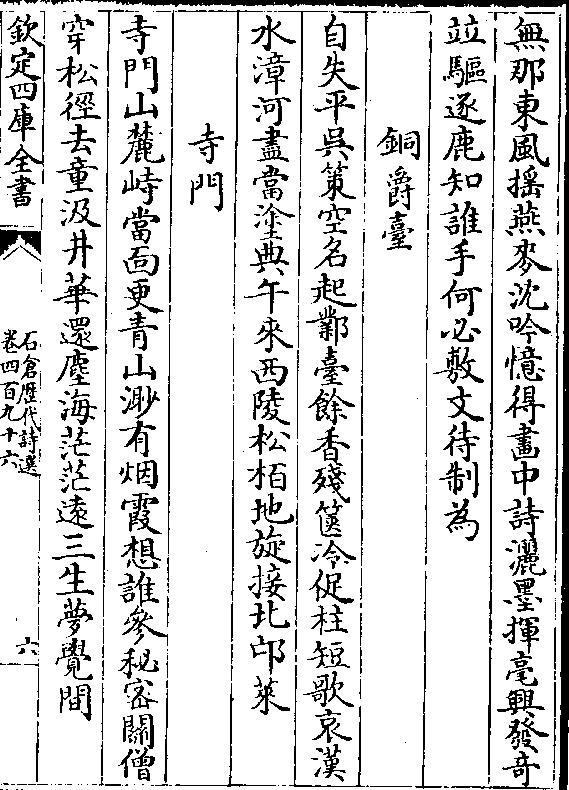 無那東風揺燕麥沈吟憶得畫中詩灑墨揮毫興發竒
竝驅逐鹿知誰手何必敷文待制為
銅爵臺
自失平吳策空名起鄴臺餘香殘篋冷促柱短歌哀漢
水漳河盡當塗典午來西陵松栢地旋接北邙萊
寺門
寺門山麓峙當面更青山渺有烟霞想誰參秘宻關僧
穿松徑去童汲井華還塵海茫茫逺三生夢覺間
欽定四庫全書
石倉歴代詩選
卷四百九十六
六